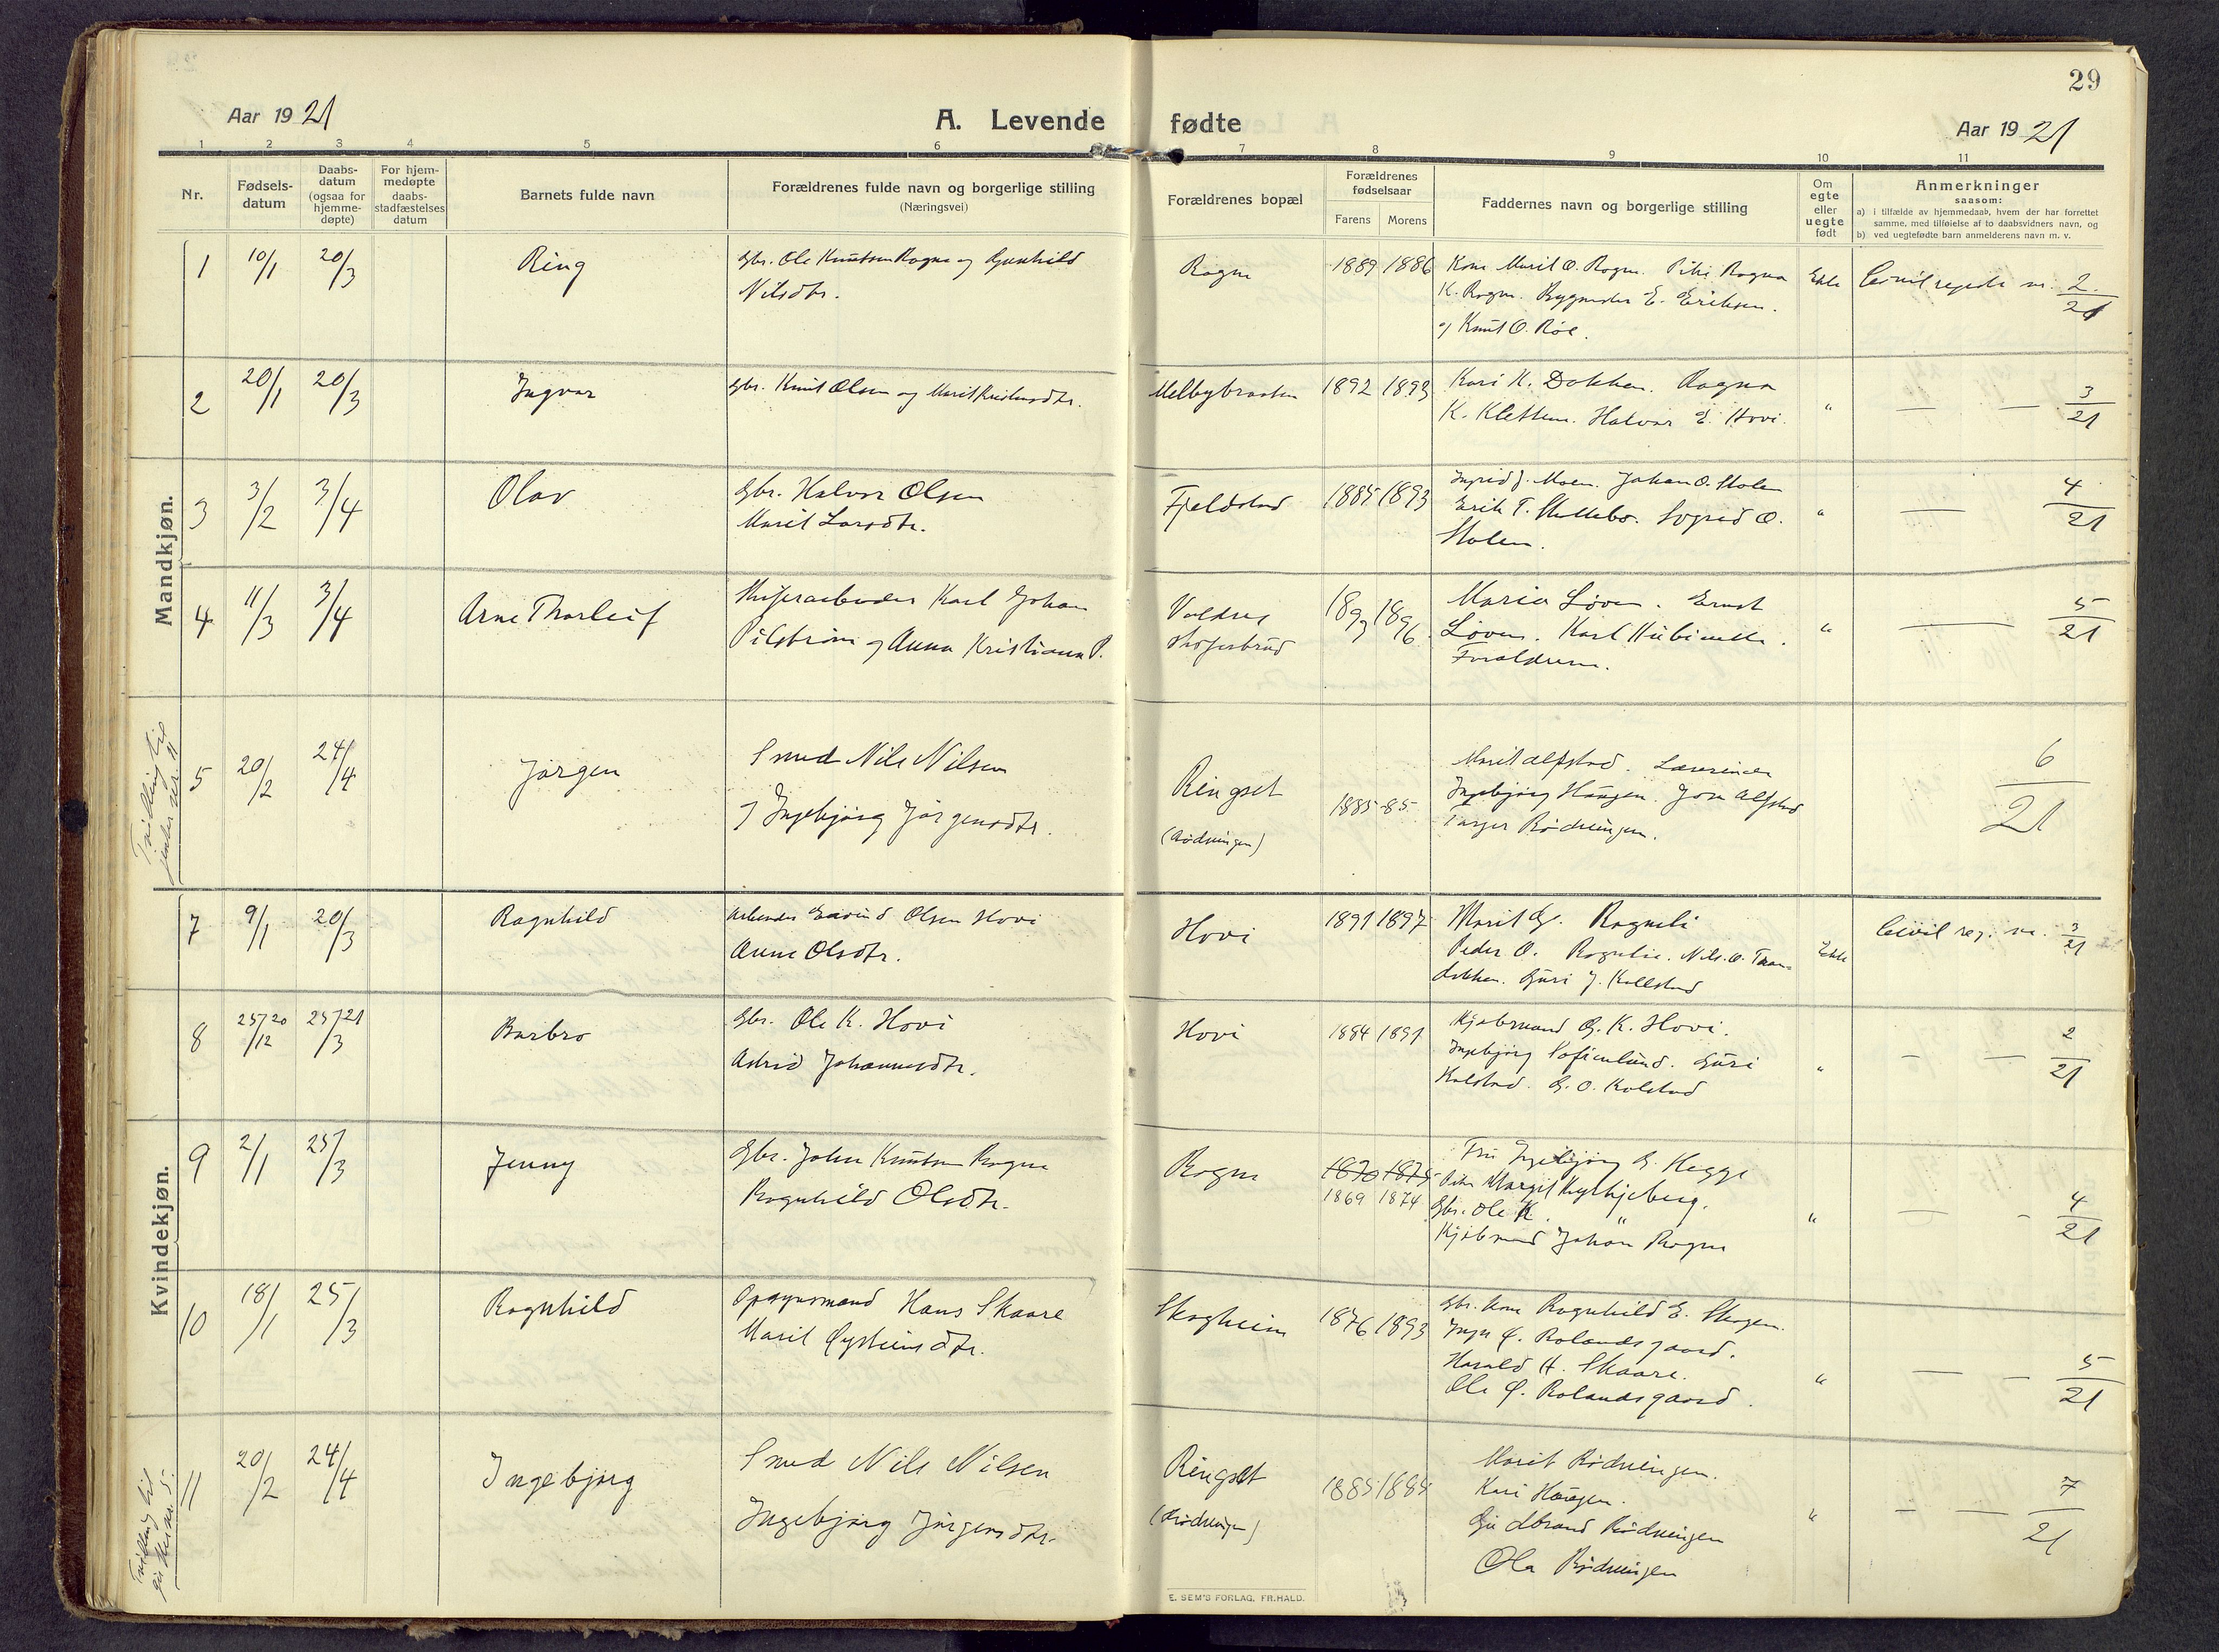 29
Aar 1921
A. Levende fødte
Aar 1921
1 2 3 4 5 6 7 8 9 10 11
Nr.
Fødsels-
datum
Daabs-
datum
(ogsaa for
hjemme-
døpte)
For hjem-
medøpte
daabs-
stadfæstelses
datum
Barnets fulde navn
Forældrenes fulde navn og borgerlige stilling
(Næringsvei)
Forældrenes bopæl
Forældrenes
fødselsaar
Farens Morens
Faddernes navn og borgerlige stilling
Om
egte
eller
uegte
født
Anmerkninger
saasom:
a) i tilfælde av hjemmedaab, hvem der har forrettet
samme, med tilføielse af to daabsvidners navn, og
b) ved uegtefødte barn anmelderens navn m. v.
Mandkjøn.
1 10/1 20/3 Ring
Gbr. Ole Knutsen Rogne og Gunhild
Nilsdtr.
Rogne
1889 1886
Kone Marit O. Rogne. Pike Ragna
K. Rogne. Bygmester E. Eriksen.
og Knut O. Röe.
Ekte
Civil regest. nr. 2/21
2 20/1 20/3 Ingvar
Gbr. Knut Olsen og Marit Kristensdtr.
Melbybraaten
1892 1893
Kari K. Dokken. Ragna
K. Klettum. Halvor E. Hovi.
"
— — 3/21
3 3/2 3/4 Olav
Gbr. Halvor Olsen
Marit Larsdtr.
Fjeldstad
1885 1893
Ingrid J. Moen. Johan O. Stolen
Erik T. Skattebo. Sigrid O.
Stolen.
"
— 4/21
4 11/3 3/4 Arne Thorleif
Skiferarbeider Karl Johan
Pilström og Anna Kristiane P.
Valdres
skiferbrud
1893 1896
Maria Löven. Ernst
Löven. Karl Hübinette.
Forældrene.
"
— 5/21
Tvilling til
jenter nr. 11
5 20/2 24/4 Jörgen
Smed Nils Nilsen
og Ingebjörg Jörgensdtr.
Ringset
(Rödningen)
1885 -85
Marit Alfstad. Lærerinde
Ingebjörg Haugen. Jon Alfstad
Torger Rödningen.
6/21
Kvindekjøn.
7 9/1 20/3 Ragnhild
Arbeider Eivind Olsen Hovi
Anne Olsdtr.
Hovi
1891 1897
Marit G. Rogneli
Peder O. Rognelie. Nils O. Tran-
dokken. Guri J. Kolstad
Ekte
Civil reg. nr. 3/21
8 25/12 20 25/3 21 Barbro
Gbr. Ole K. Hovi
Astrid Johannesdtr.
Hovi
1884 1891
Kjöbmand G. K. Hovi.
Ingebjörg Sofienlund. Guri
Kolstad. G. O. Kolstad
"
— — 2/21
9 2/1 25/3 Jenny
Gbr. John Knutsen Rogne
Ragnhild Olsdtr.
Rogne
1870 1875
1869 1874
Fru Ingebjörg G. Hegge
Pike Margit
Gbr. Ole K. "
Kjöbmand Johan Rogne
"
— - 4/21
10 18/1 25/3 Ragnhild
Opsynsmand Hans Skaare
Marit Øysteinsdtr.
Skogheim
1876 1893
Gbr. kone Ragnhild E. Skogen.
Inga Ø. Rolandsgaard.
Harald H. Skaare.
Ole Ø. Rolandsgaard.
"
— - 5/21
Tvilling til
gutten nr. 5.
11 20/2 24/4 Ingebjörg
Smed Nils Nilsen
Ingebjörg Jörgensdtr.
Ringset
(Rödningen)
1885 1885
Marit Rödningen.
Kari Haugen.
Gudbrand Rödningen
Ola Rödningen
"
— — 7/21
E. SEM'S FORLAG, FR.HALD.